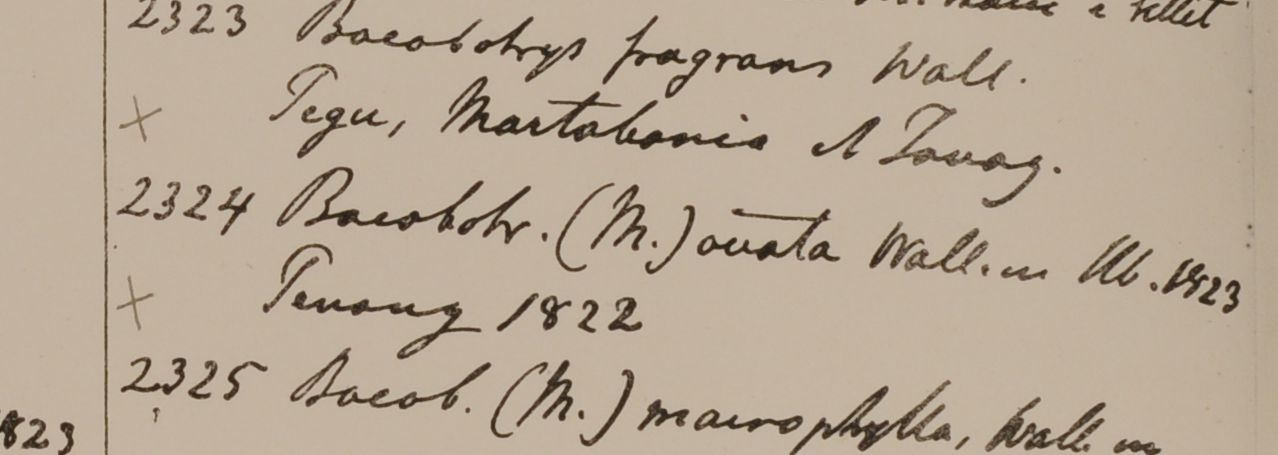 2323 Baeobotrys fragrans Wall.
× Pegu, Martabania et Tavoy.
2324 Baeobotr. (M.) ovata Wall. in Hb. 1823
× Penang 1822
2325 Baeob. (M.) macrophylla, Wall. in
1823